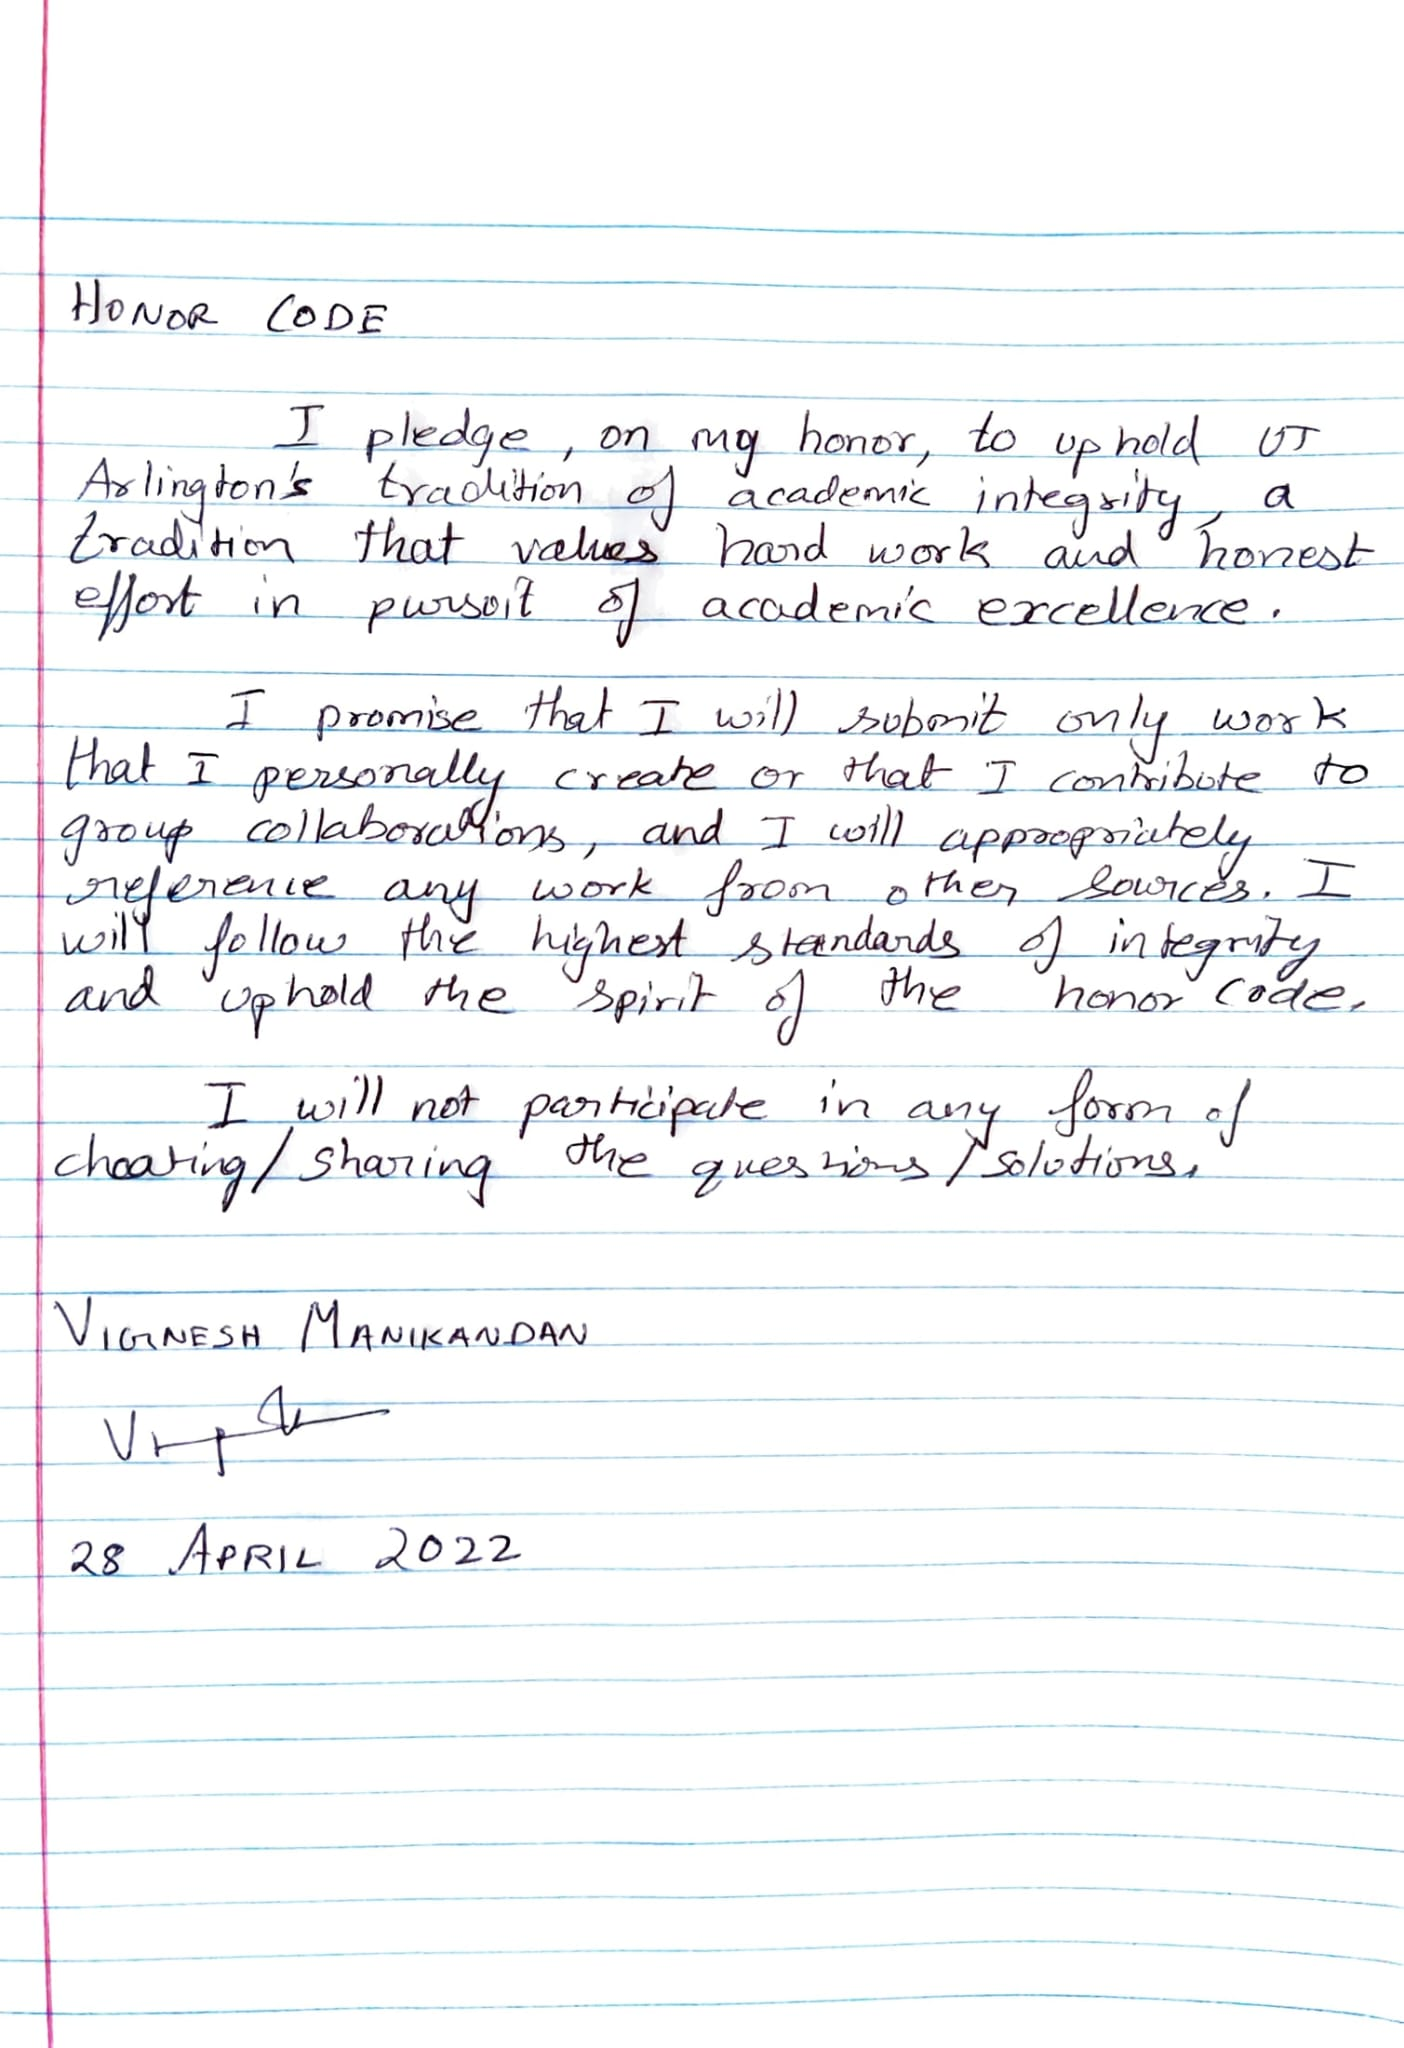 HONOR CODE
I pledge, on my honor, to uphold UT
Arlington's tradition of academic integrity, a
tradition that values hard work and honest
effort in pursuit of academic excellence.
I promise that I will submit only work
that I personally create or that I contribute to
group collaborations, and I will appropriately
reference any work from other sources. I
will follow the highest standards of integrity
and uphold the spirit of the honor code.
I will not participate in any form of
cheating/sharing the questions/solutions.
VIGNESH MANIKANDAN
28 APRIL 2022